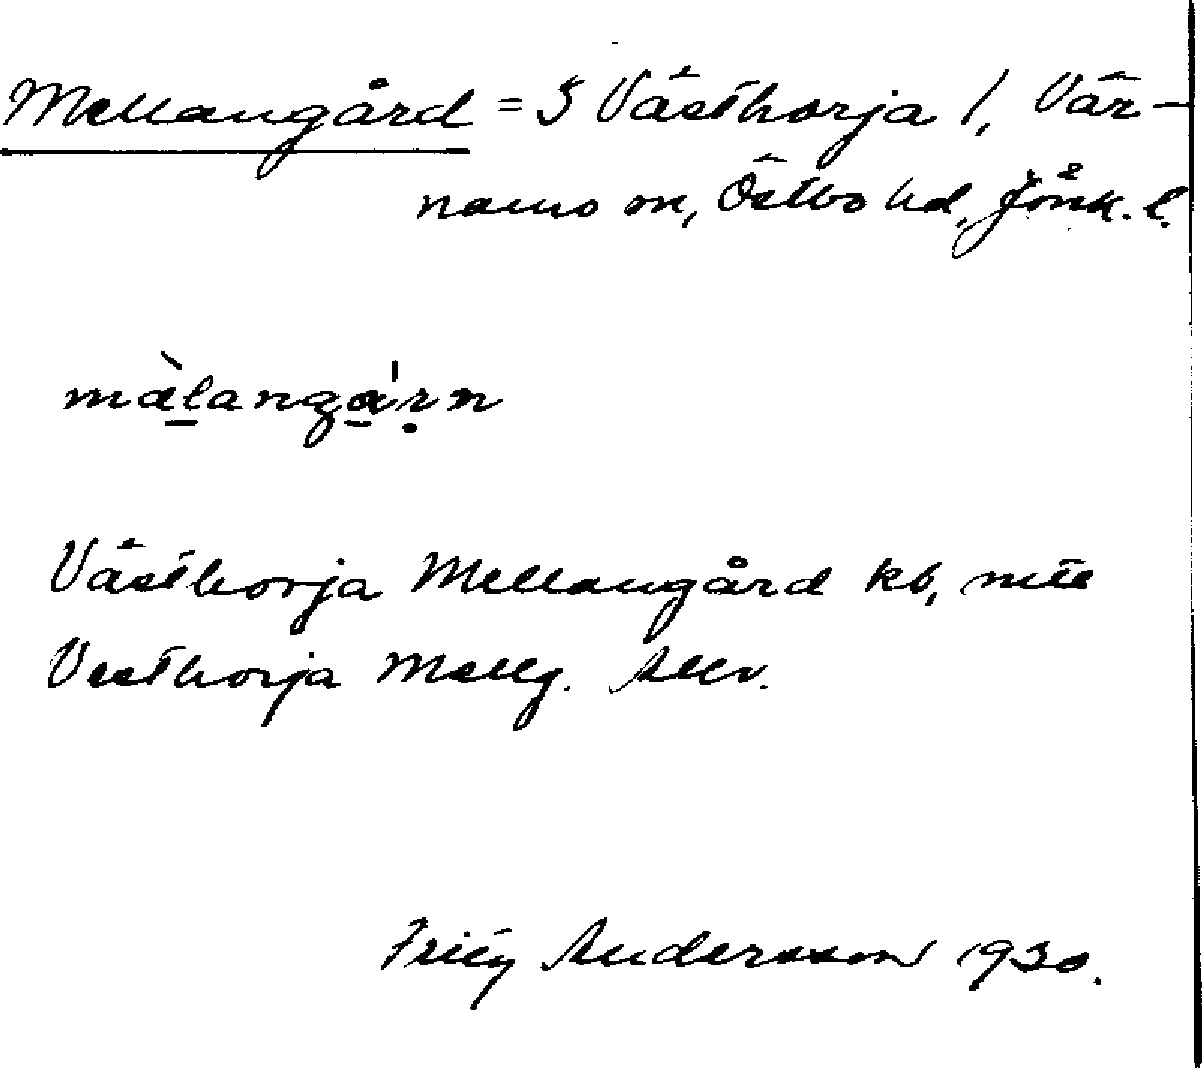 Mellangård = S Västhorja 1, Vär-
namo sn, Östbo hd, Jönk. l.
mälangårn
Västhorja Mellangård kb,
Vesthorja Mellg.
Andersson 1930.